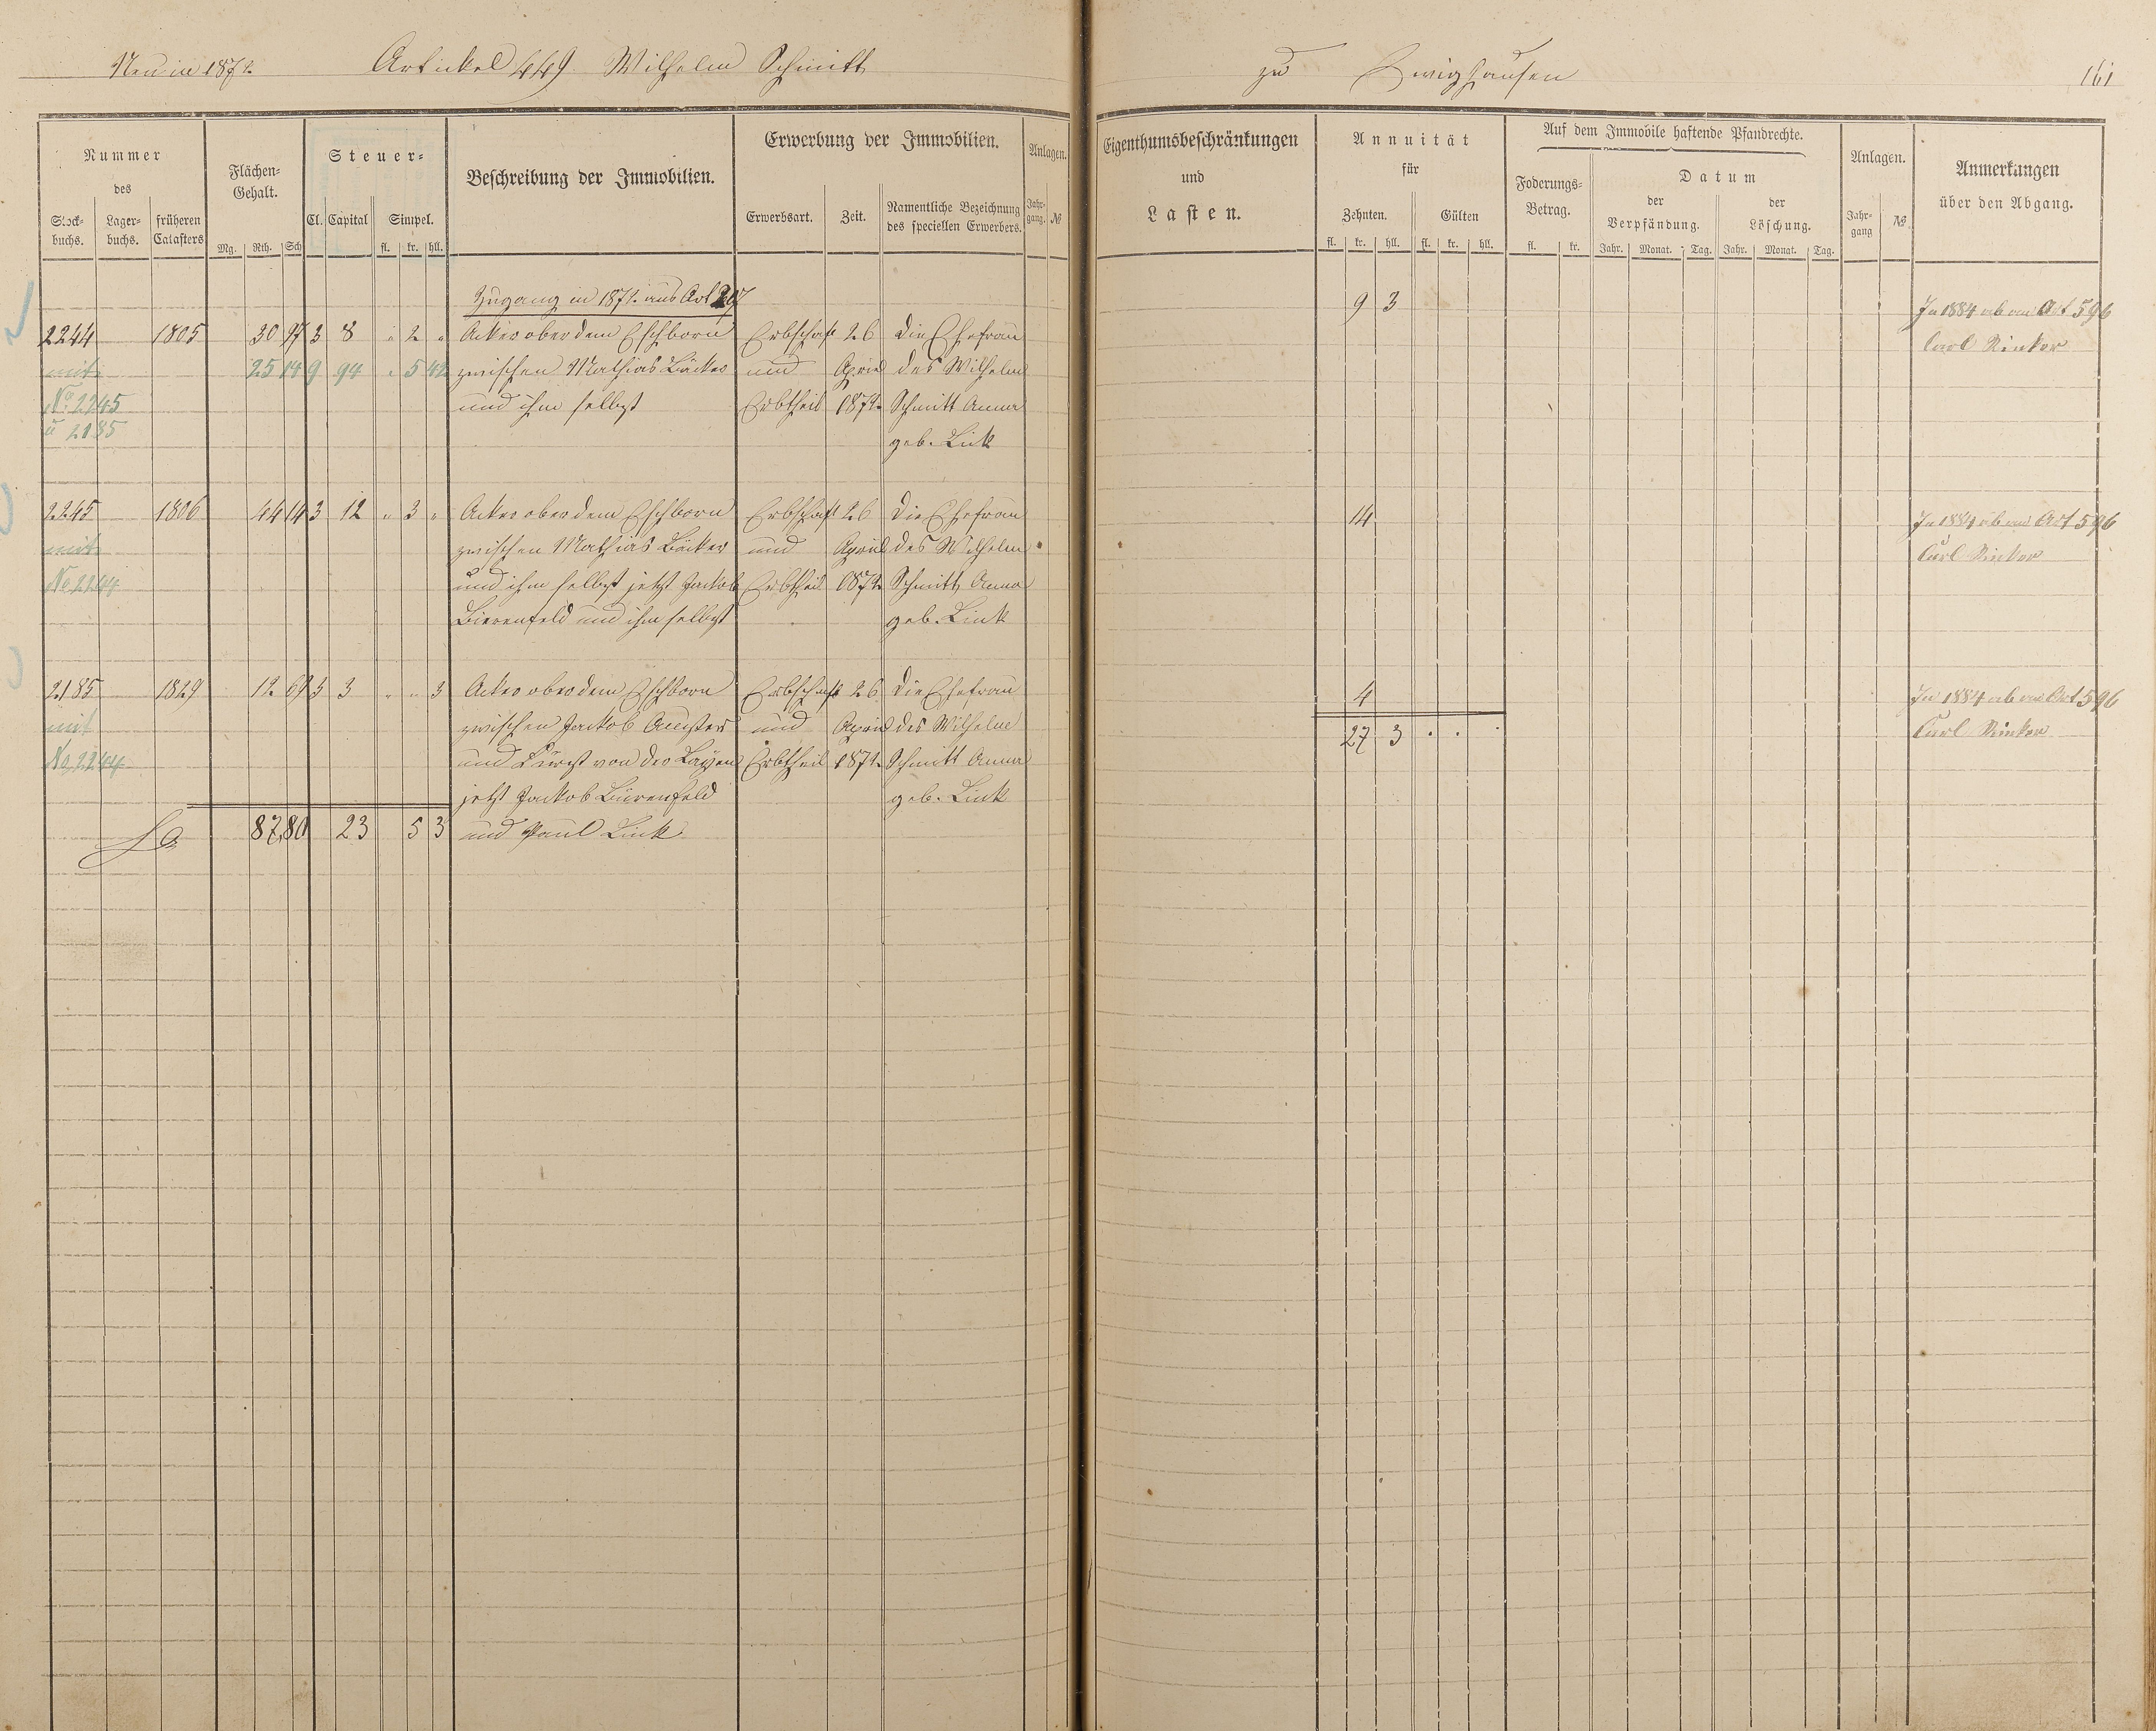 Neu in 1872. Artickel 449. Wilhelm Schmitt zu Ewighausen 161
Nummer
des
Stock-
buchs.
Lager-
buchs.
früheren
Catasters
Flächen-
Gehalt.
Mg. Rth. Sch
Steuer-
Cl. Capital Simpel.
fl. kr. hll.
Beschreibung der Immobilien.
Erwerbung der Immobilien.
Erwerbsart. Zeit.
Namentliche Bezeichnung
des speciellen Erwerbers.
Anlagen.
Jahr-
gang. №
Eigenthumsbeschränkungen
und
Lasten.
Annuität
für
Zehnten. Gülten
fl. kr. hll. fl. kr. hll.
Auf dem Immobile haftende Pfandrechte.
Foderungs-
Betrag.
fl. kr.
Datum
der
Verpfändung.
der
Löschung.
Jahr. Monat. Tag. Jahr. Monat. Tag.
Anlagen.
Jahr-
gang №
Anmerkungen
über den Abgang.
Zugang in 1872. aus Art 207
9 3
2244 1805 30 97 3 8 " 2 " Acker ober dem Eschborn Erbschaft 26 die Ehefrau In 1884 ab an Art 596
mit 25 14 9 94 " 5 42 zwischen Mathias Bäcker und April des Wilhelm Carl Rinker
No 2245 und ihm selbst Erbtheil 1872. Schmitt Anna
u 2185 geb. Link
2245 1806 44 14 3 12 " 3 " Acker ober dem Eschborn Erbschaft 26 die Ehefrau 14 In 1884 ab an Art 596
mit zwischen Mathias Bäcker und April des Wilhelm Carl Rinker
No 2244 und ihm selbst jetzt Jackob Erbtheil 1872 Schmitt Anna
Bierenfeld und ihm selbst geb. Link
2185 1829 12 69 3 3 " " 3 Acker ober dem Eschborn Erbschaft 26 die Ehefrau 4 In 1884 ab an Art 596
mit zwischen Jackob und April des Wilhelm 27 3 Carl Rinker
No 2244 und Fürst von der Layen Erbtheil 1872. Schmitt Anna
jetzt Jackob Bierenfeld geb. Link
87 80 23 5 3 und Paul Link